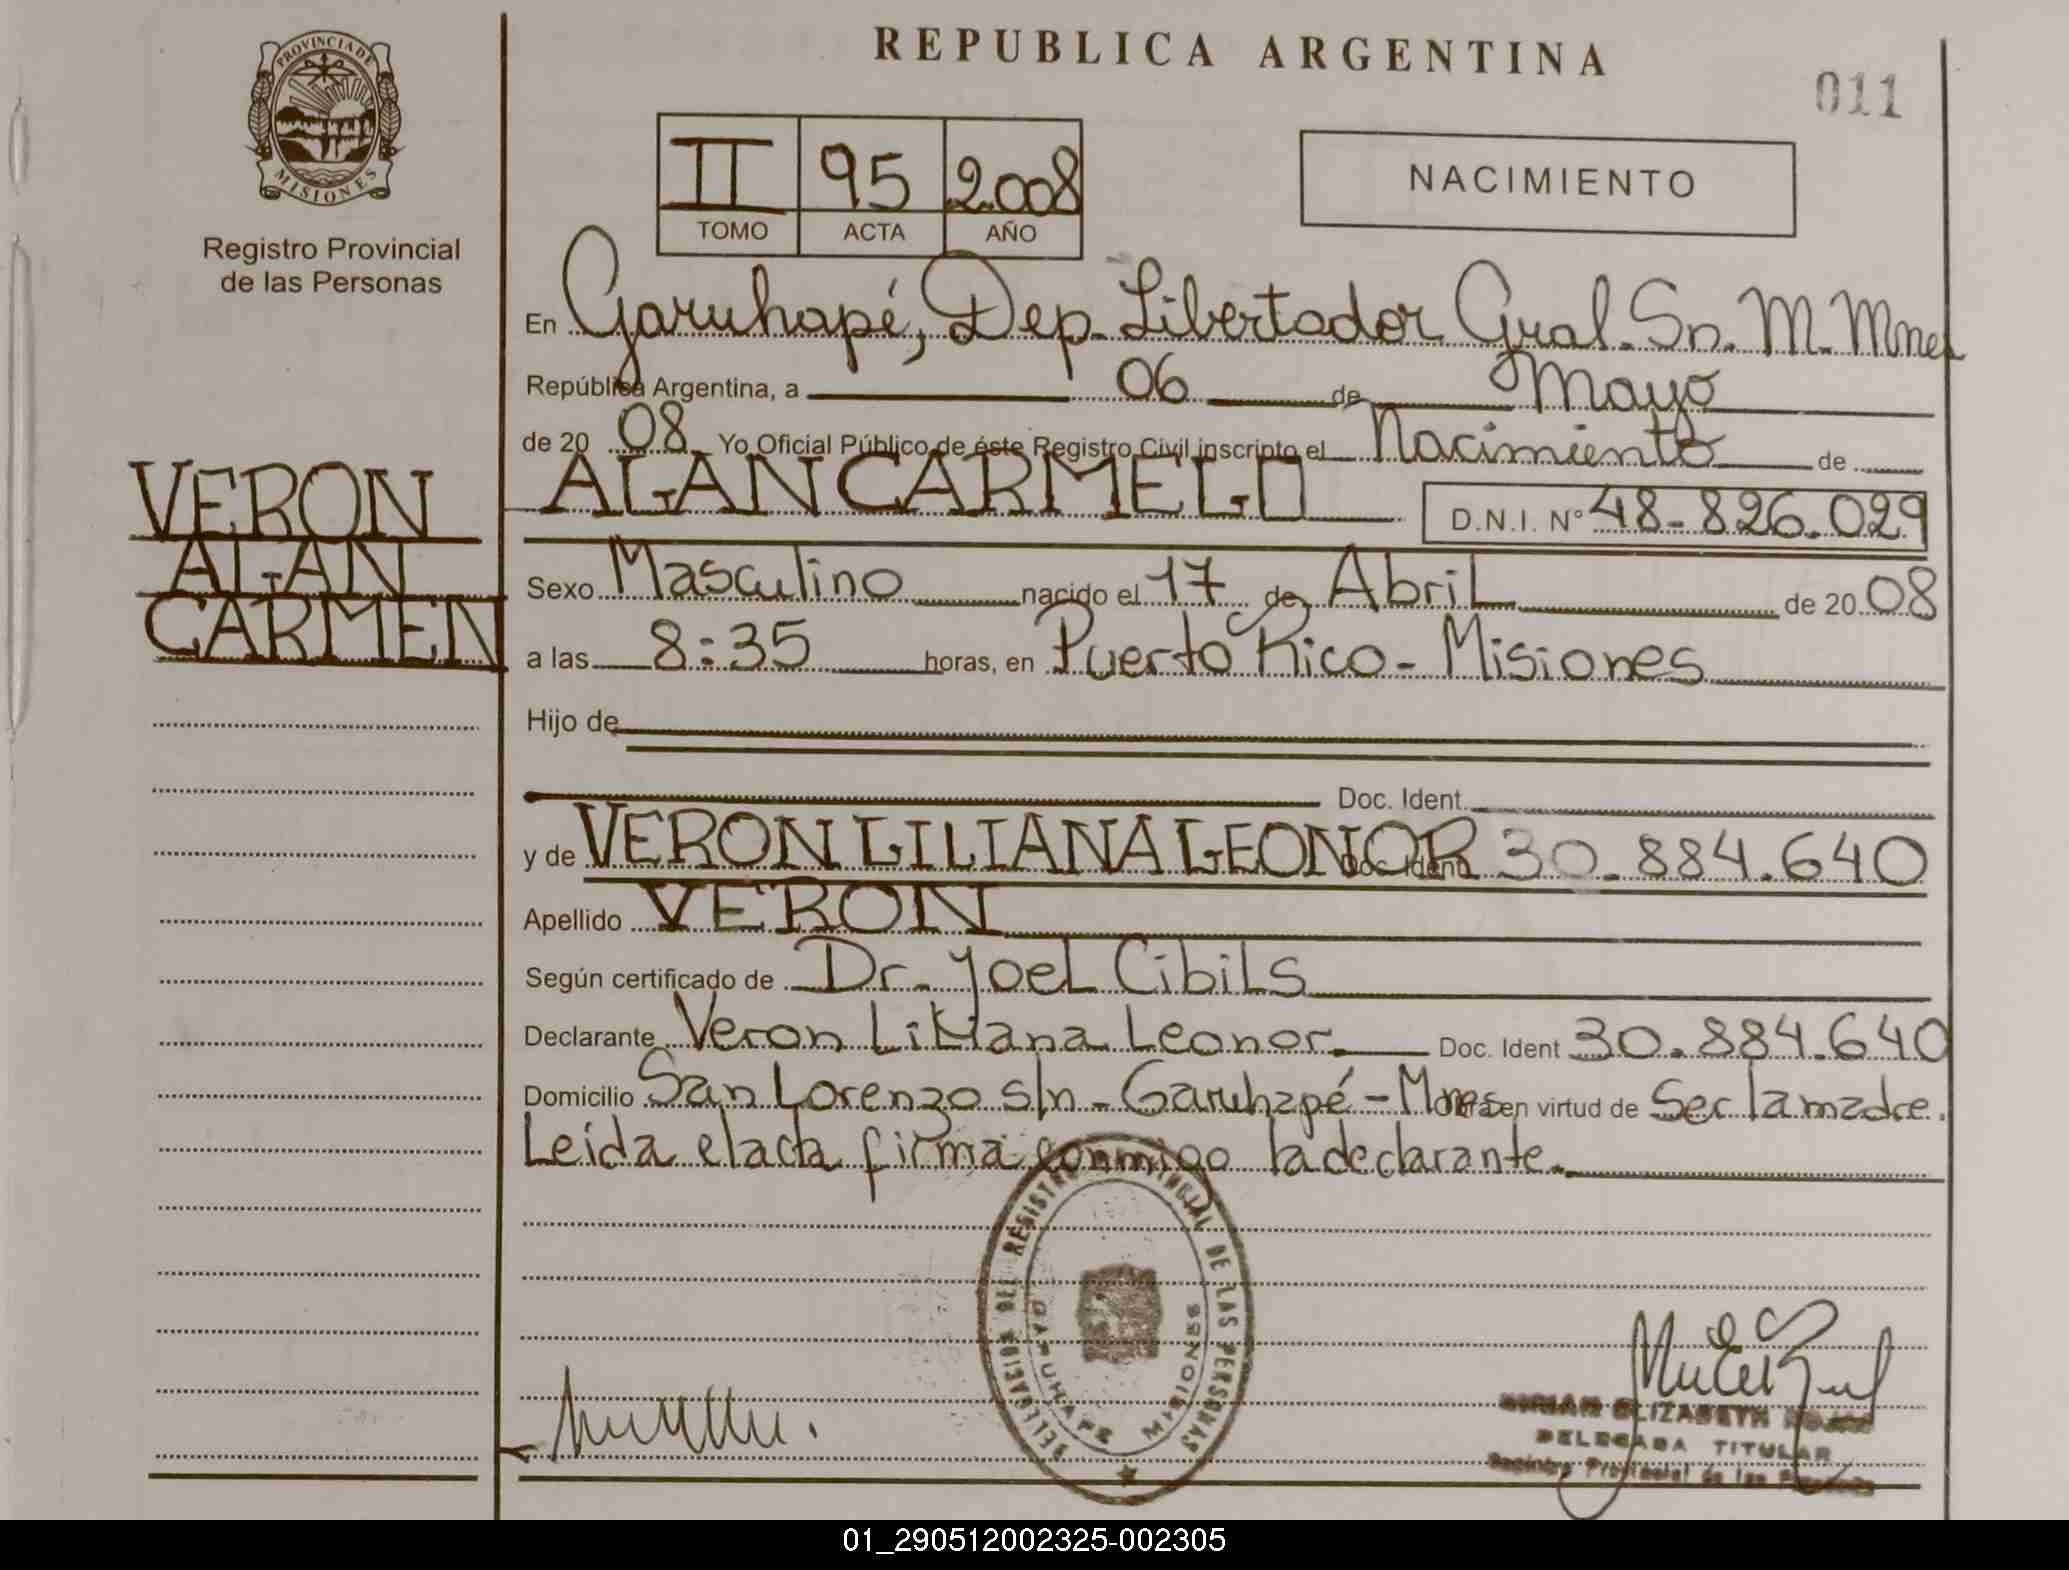 PROVINCIA DE
MISIONES
Registro Provincial
de las Personas
VERON
ALAN
CARMEN
REPUBLICA ARGENTINA
011
II 95 2.008
TOMO ACTA AÑO
NACIMIENTO
En Garuhapé, Dep. Libertador Gral. Sn. M. Mnes
República Argentina, a 06 de Mayo
de 20 08 Yo Oficial Público de éste Registro Civil inscripto el Nacimiento de
ALAN CARMELO D.N.I. N° 48-826.029
Sexo Masculino nacido el 17 de Abril de 20 08
a las 8:35 horas, en Puerto Rico - Misiones
Hijo de
Doc. Ident.
y de VERON LILIANA LEONOR Doc. Ident. 30.884.640
Apellido VERON
Según certificado de Dr. Yoel Cibils
Declarante Veron Liliana Leonor. Doc. Ident 30.884.640
Domicilio San Lorenzo s/n - Garuhapé - Mnes en virtud de Ser la madre.
Leida el acta firma conmigo la declarante.
DELEGACION DEL REGISTRO PROVINCIAL DE LAS PERSONAS
GARUHAPE MISIONES
MIRIAM ELIZABETH
DELEGADA TITULAR
Registro Provincial de las Personas
01_290512002325-002305